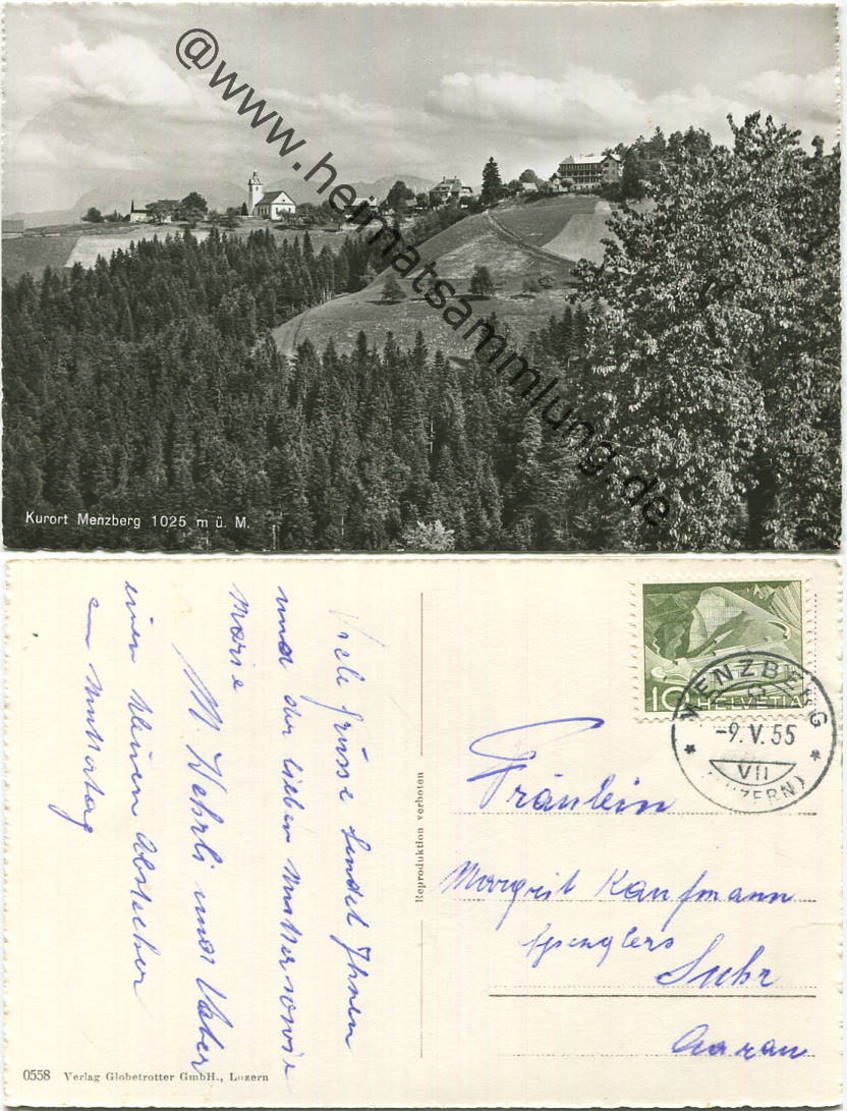 @www.heimatsammlung.de
Kurort Menzberg 1025 m ü. M.
Viele Grüsse sendet Ihnen
und der lieben Mutter sowie
Marie
M. Wehrli und Vater
einen kleinen Abstecher
am Muttertag
Reproduktion verboten
0558 Verlag Globetrotter GmbH., Luzern
10 HELVETIA
MENZBERG
-9.V.55
VII
(LUZERN)
Fräulein
Margrit Kaufmann
Spenglers
Suhr
Aarau